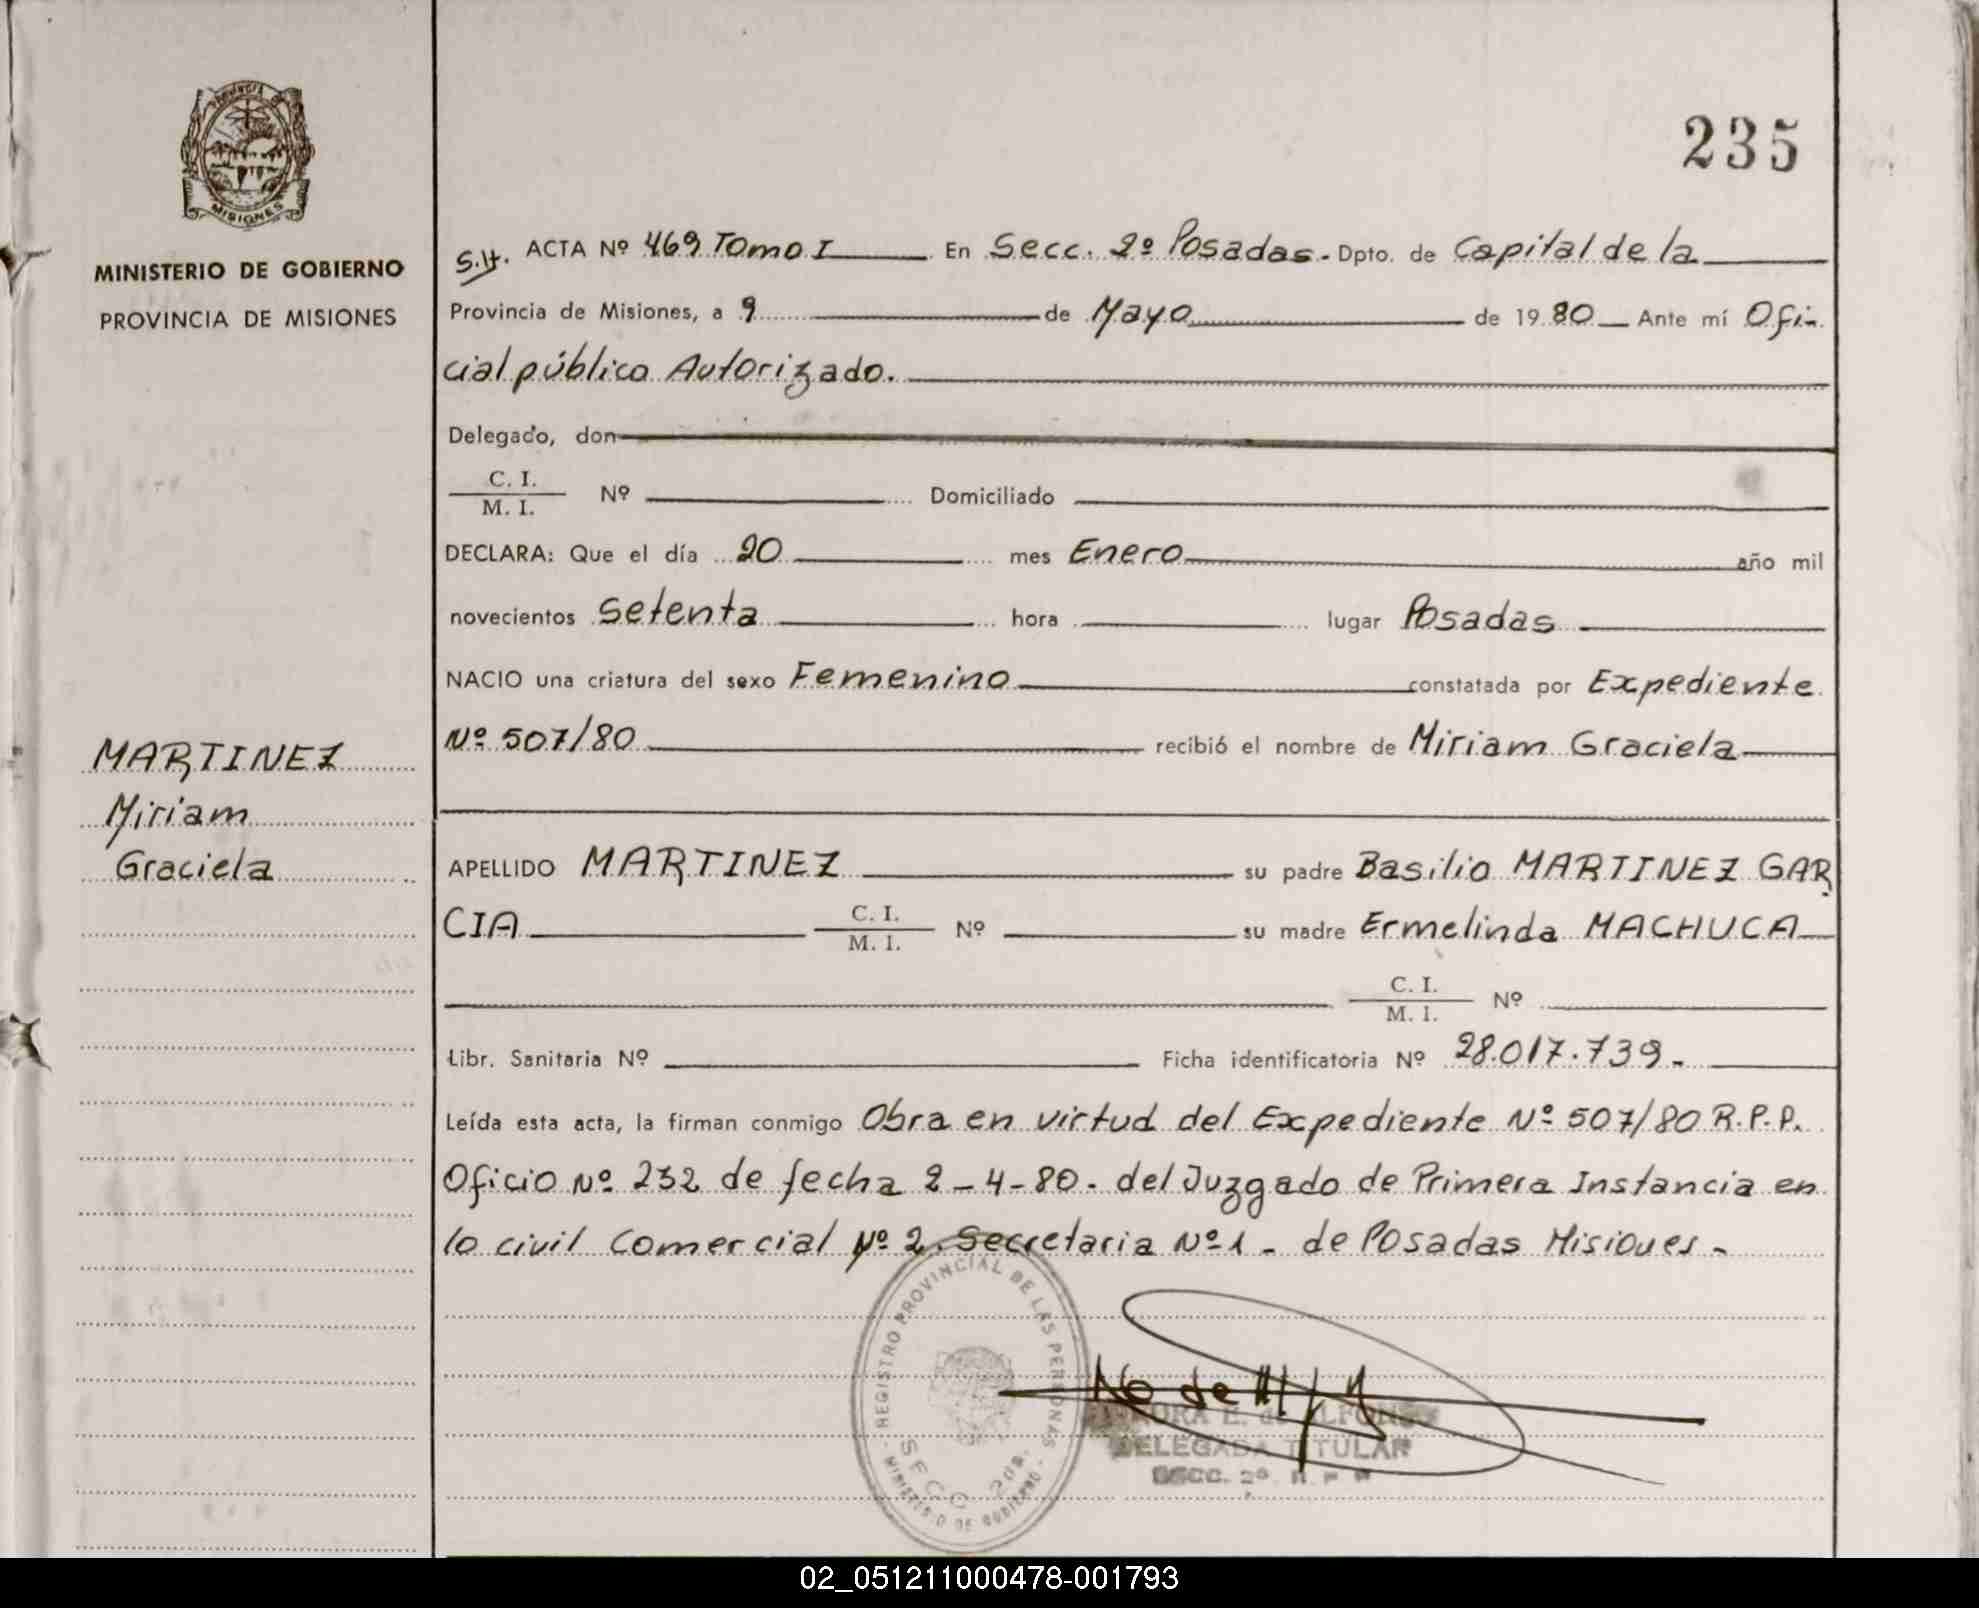 235
PROVINCIA DE
MISIONES
MINISTERIO DE GOBIERNO
PROVINCIA DE MISIONES
MARTINEZ
Miriam
Graciela
S.H. ACTA Nº 469 Tomo I En Secc. 2º Posadas. Dpto. de Capital de la
Provincia de Misiones, a 9 de Mayo de 1980 Ante mí Ofi-
cial público Autorizado.
Delegado, don
C. I.
M. I. Nº Domiciliado
DECLARA: Que el día 20 mes Enero año mil
novecientos Setenta hora lugar Posadas
NACIO una criatura del sexo Femenino constatada por Expediente
Nº 507/80 recibió el nombre de Miriam Graciela
APELLIDO MARTINEZ su padre Basilio MARTINEZ GAR
CIA C. I. M. I. Nº su madre Ermelinda MACHUCA
C. I. M. I. Nº
Libr. Sanitaria Nº Ficha identificatoria Nº 28.017.739.-
Leída esta acta, la firman conmigo Obra en virtud del Expediente Nº 507/80 R.P.P.
Oficio Nº 232 de fecha 2-4-80. del Juzgado de Primera Instancia en
lo civil Comercial Nº 2. Secretaria Nº 1 - de Posadas Misiones-
REGISTRO PROVINCIAL DE LAS PERSONAS
SECC. 2da.
MINISTERIO DE GOBIERNO
E. de
DELEGADA TITULAR
SECC. 2ª R.P.P.
02_051211000478-001793